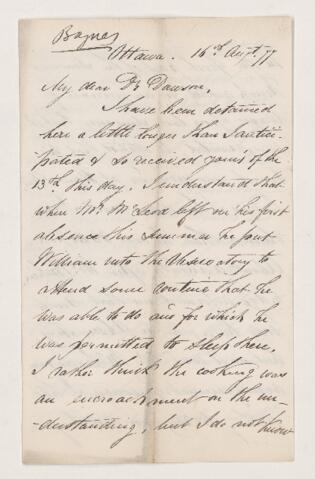 Baynes
Ottawa. 16th Augt. 77
My dear Dr Dawson,
I have been detained
here a little longer than I antici-
pated & so received yours of the
13th this day. I understand that
when Mr McLeod left on his first
absence this summer he put
William into the Observatory to
attend some routine that he
was able to do and for which he
was permitted to sleep here.
I rather think the cooking was
an encroachment on the un-
-derstanding, but I do not know